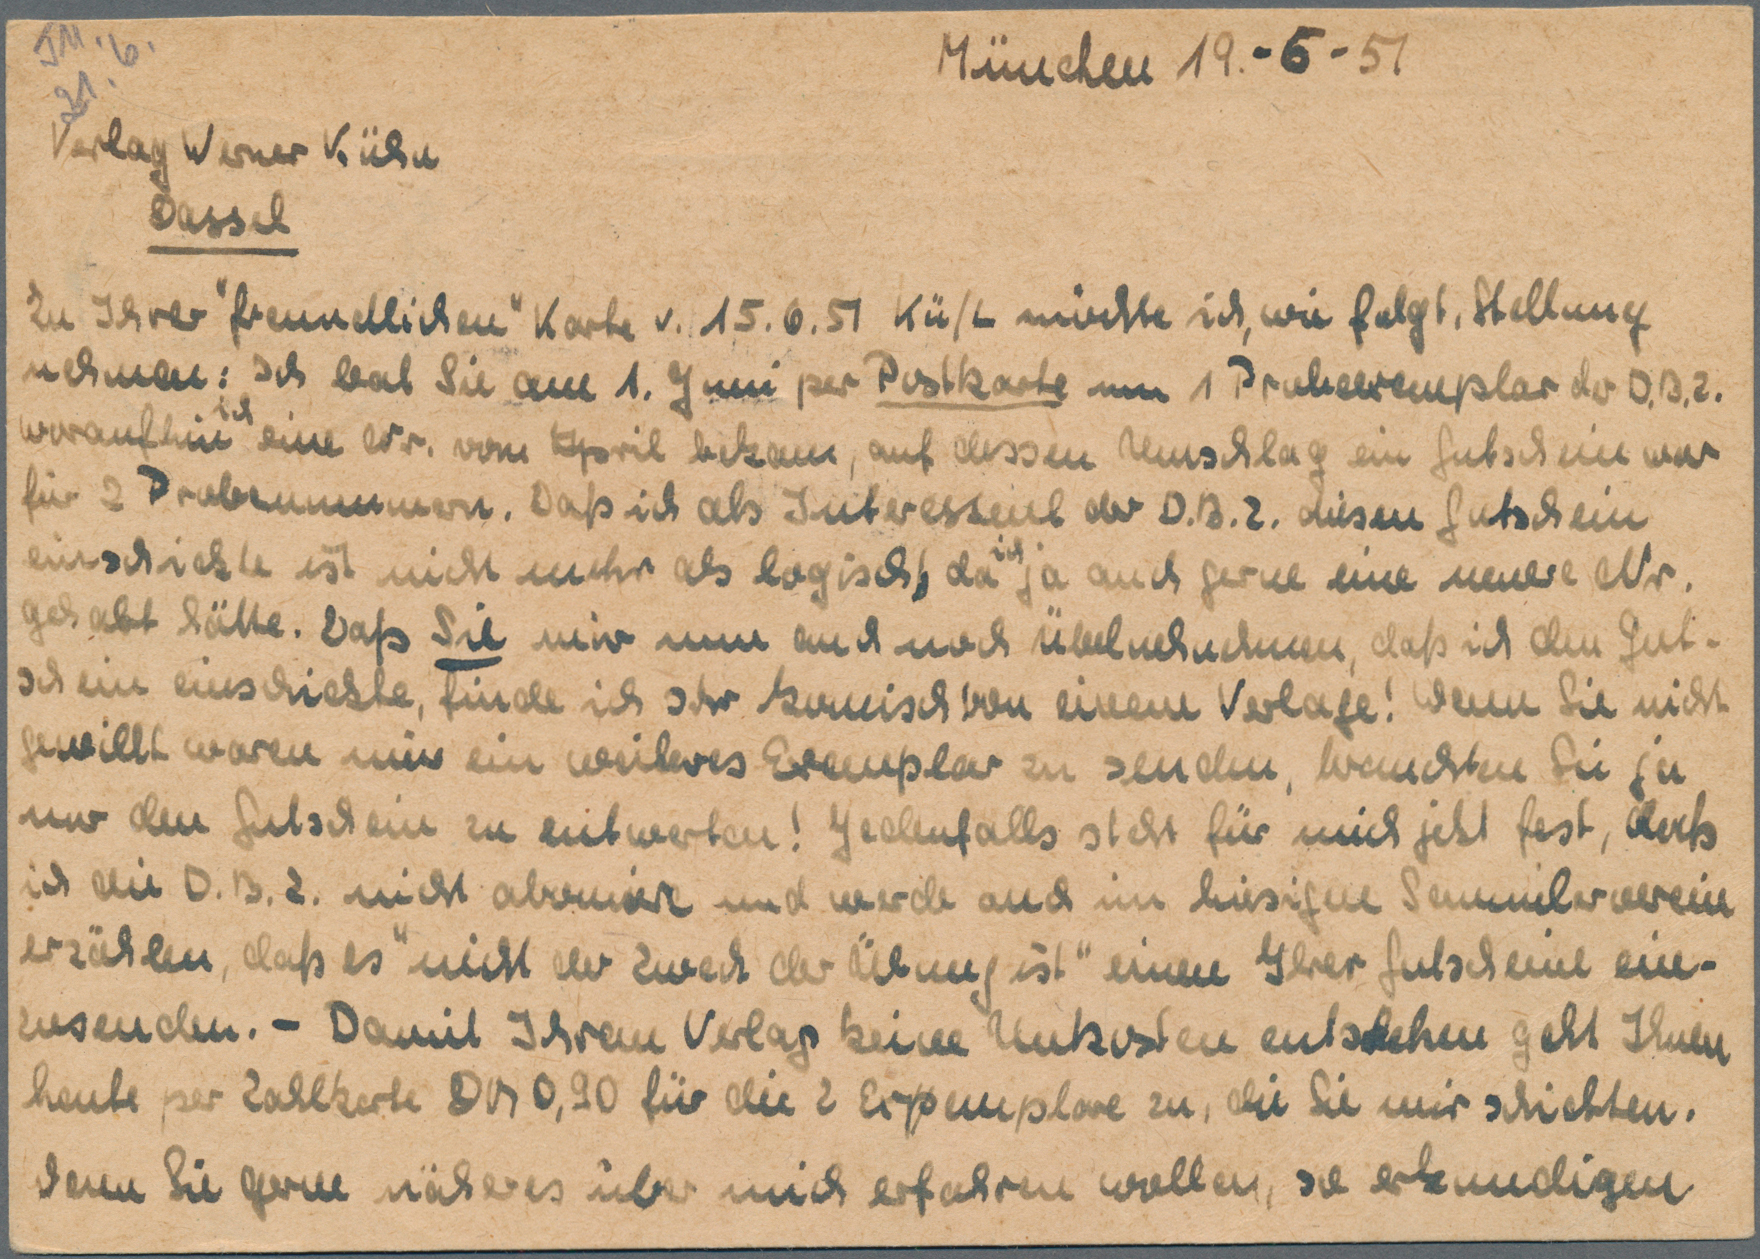 21.6.
München 19.-6-51
Verlag Werner Kühn
Dassel
Zu Ihrer "freundlichen" Karte v. 15.6.51 Kü/L möchte ich, wie folgt, Stellung
nehmen: Ich bat Sie am 1. Juni per Postkarte um 1 Probeexemplar der D.B.Z.
woraufhin ich eine Nr. vom April bekam, auf dessen Umschlag ein Gutschein war
für 2 Probenummern. Daß ich als Interessent der D.B.Z. diesen Gutschein
einschickte ist nicht mehr als logisch, da ich ja auch gerne eine neuere Nr.
gehabt hätte. Daß Sie mir nun auch noch übelnehmen, daß ich den Gut-
schein einschickte, finde ich sehr komisch von einem Verlage! Wenn Sie nicht
gewillt waren mir ein weiteres Exemplar zu senden, brauchten Sie ja
nur den Gutschein zu entwerten! Jedenfalls steht für mich jetzt fest, daß
ich die D.B.Z. nicht aboniere und werde auch im hiesigen Sammlerverein
erzählen, daß es "nicht der Zweck der Übung ist" einen Ihrer Gutscheine ein-
zusenden. - Damit Ihrem Verlag keine Unkosten entstehen geht Ihnen
heute per Zahlkarte DM 0,90 für die 2 Exemplare zu, die Sie mir schickten.
Wenn Sie gerne näheres über mich erfahren wollen, so erkundigen